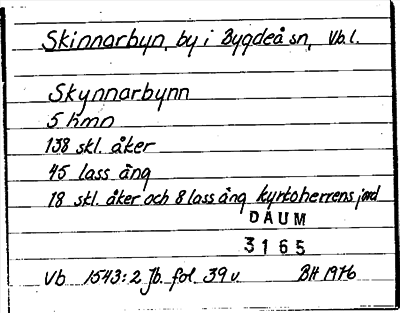 Skinnarbyn, by i Bygdeå sn, Vb.l.
Skynnarbynn
5 hmn
138 skl. åker
45 lass äng
18 skl. åker och 8 lass äng kyrkoherrens jord
DAUM
3165
Vb 1543:2 Jb. fol. 39 v. BH 1976